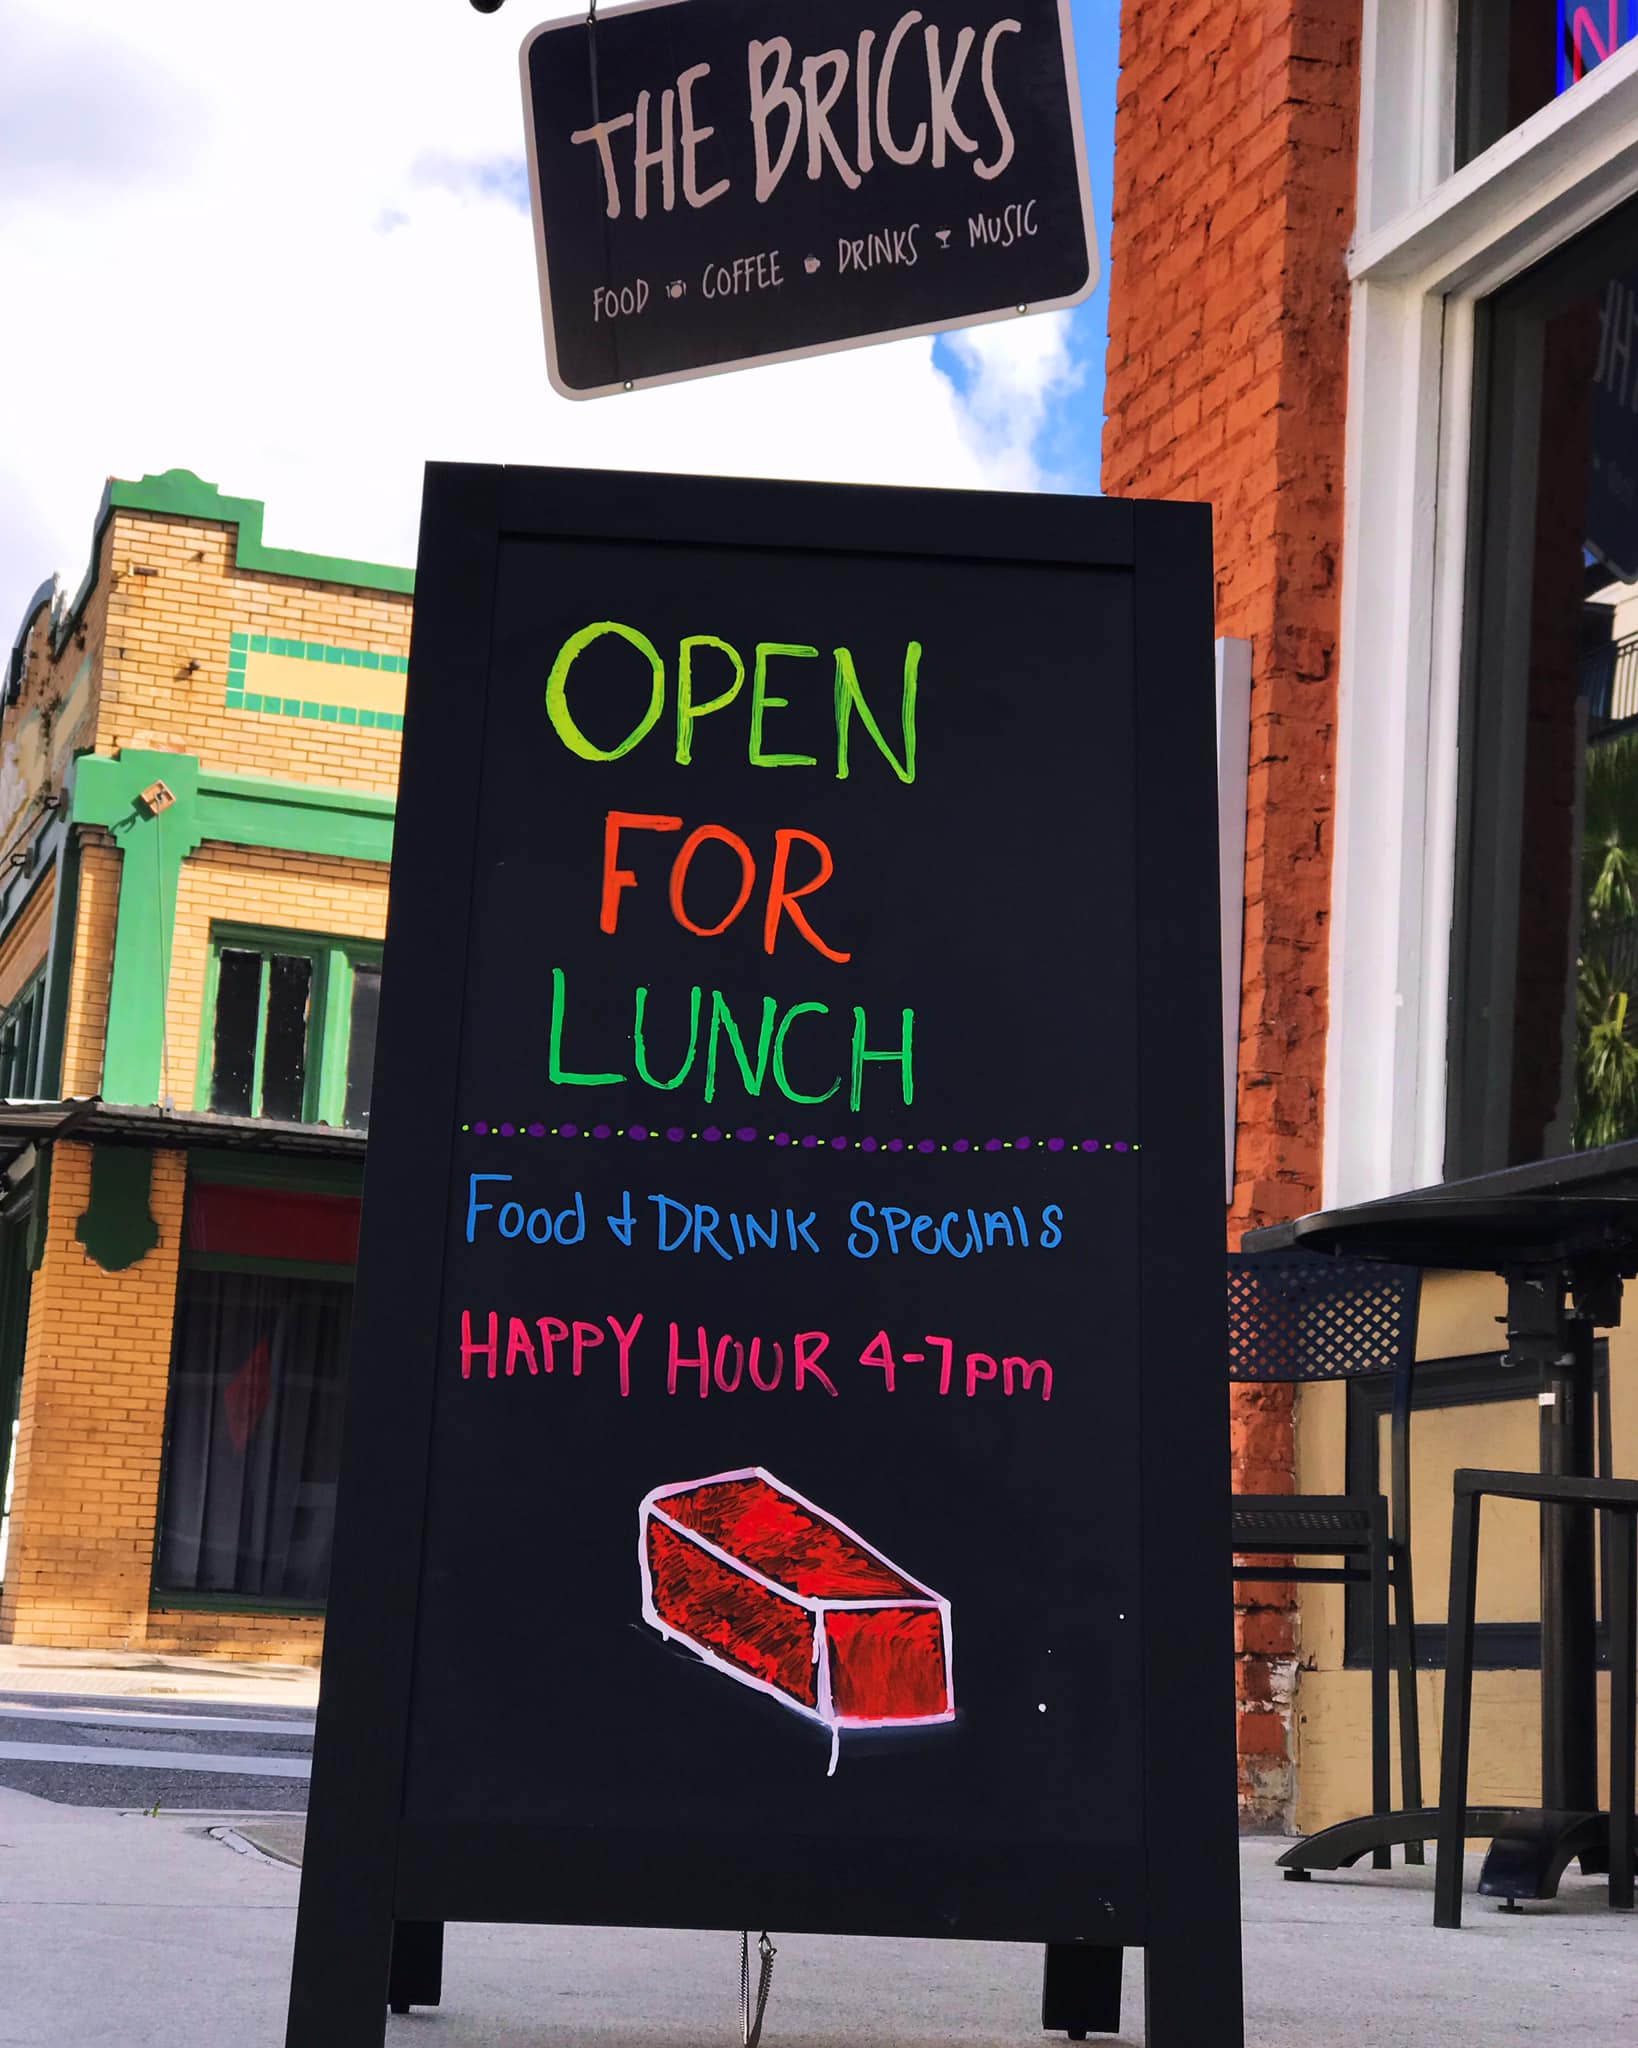 THE BRICKS
FOOD COFFEE DRINKS MUSIC
OPEN
FOR
LUNCH
Food & DRINK SPeCIAlS
HAPPY HOUR 4-7pm